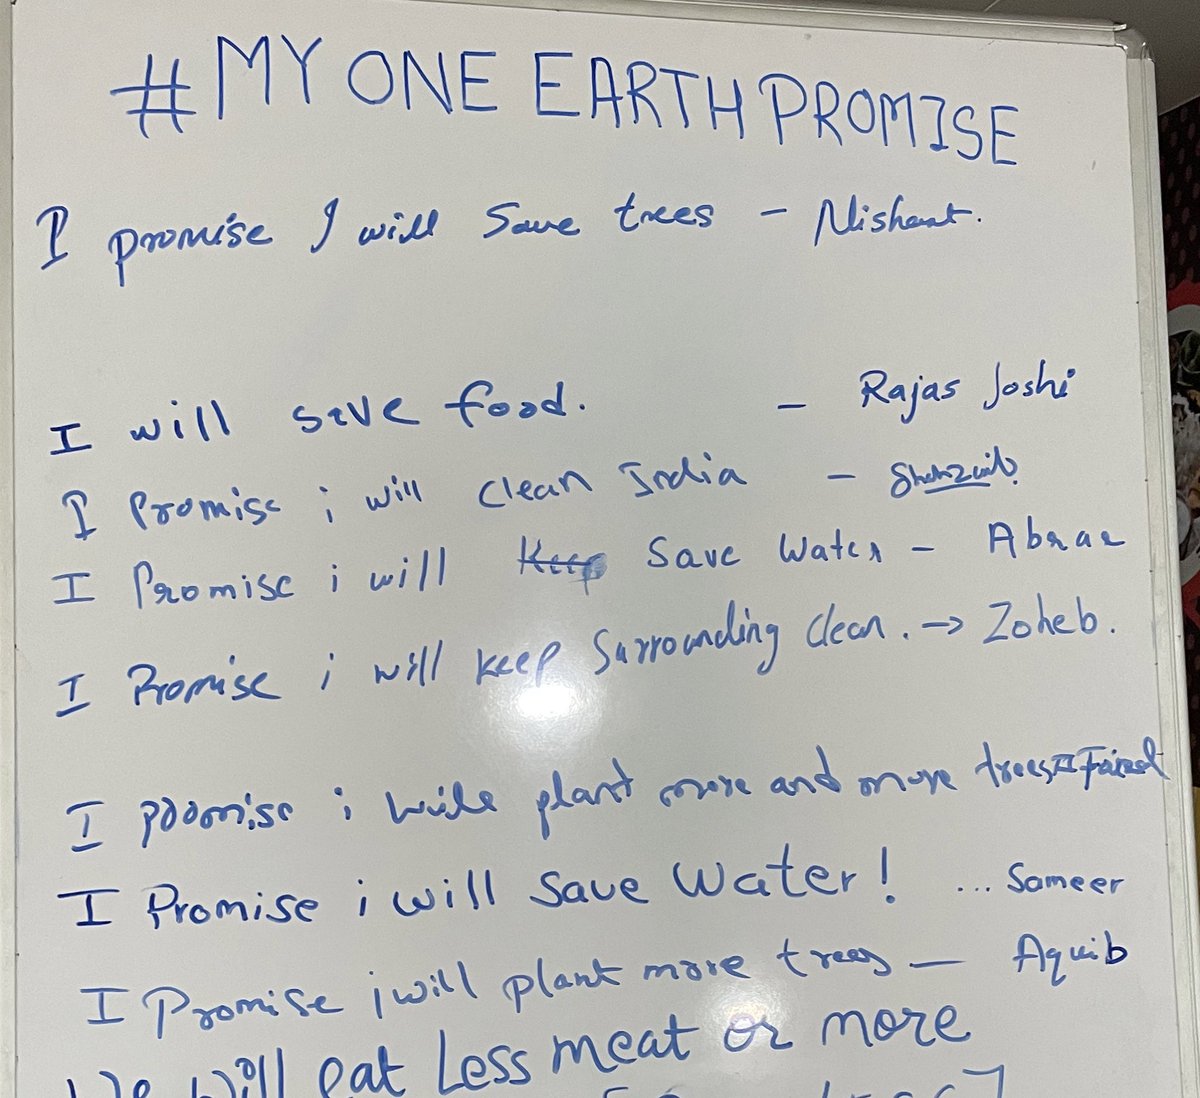 #MY ONE EARTH PROMISE
I promise I will save trees - Nishant.
I will save food. - Rajas Joshi
I Promise i will clean India - Shahzaib
I Promise i will Keep Save Water - Abrar
I Promise i will keep Surrounding Clean. → Zoheb.
I promise i will plant more and more trees
I Promise i will Save Water! ... Sameer
I Promise i will plant more trees — Aquib
We will eat Less meat or more